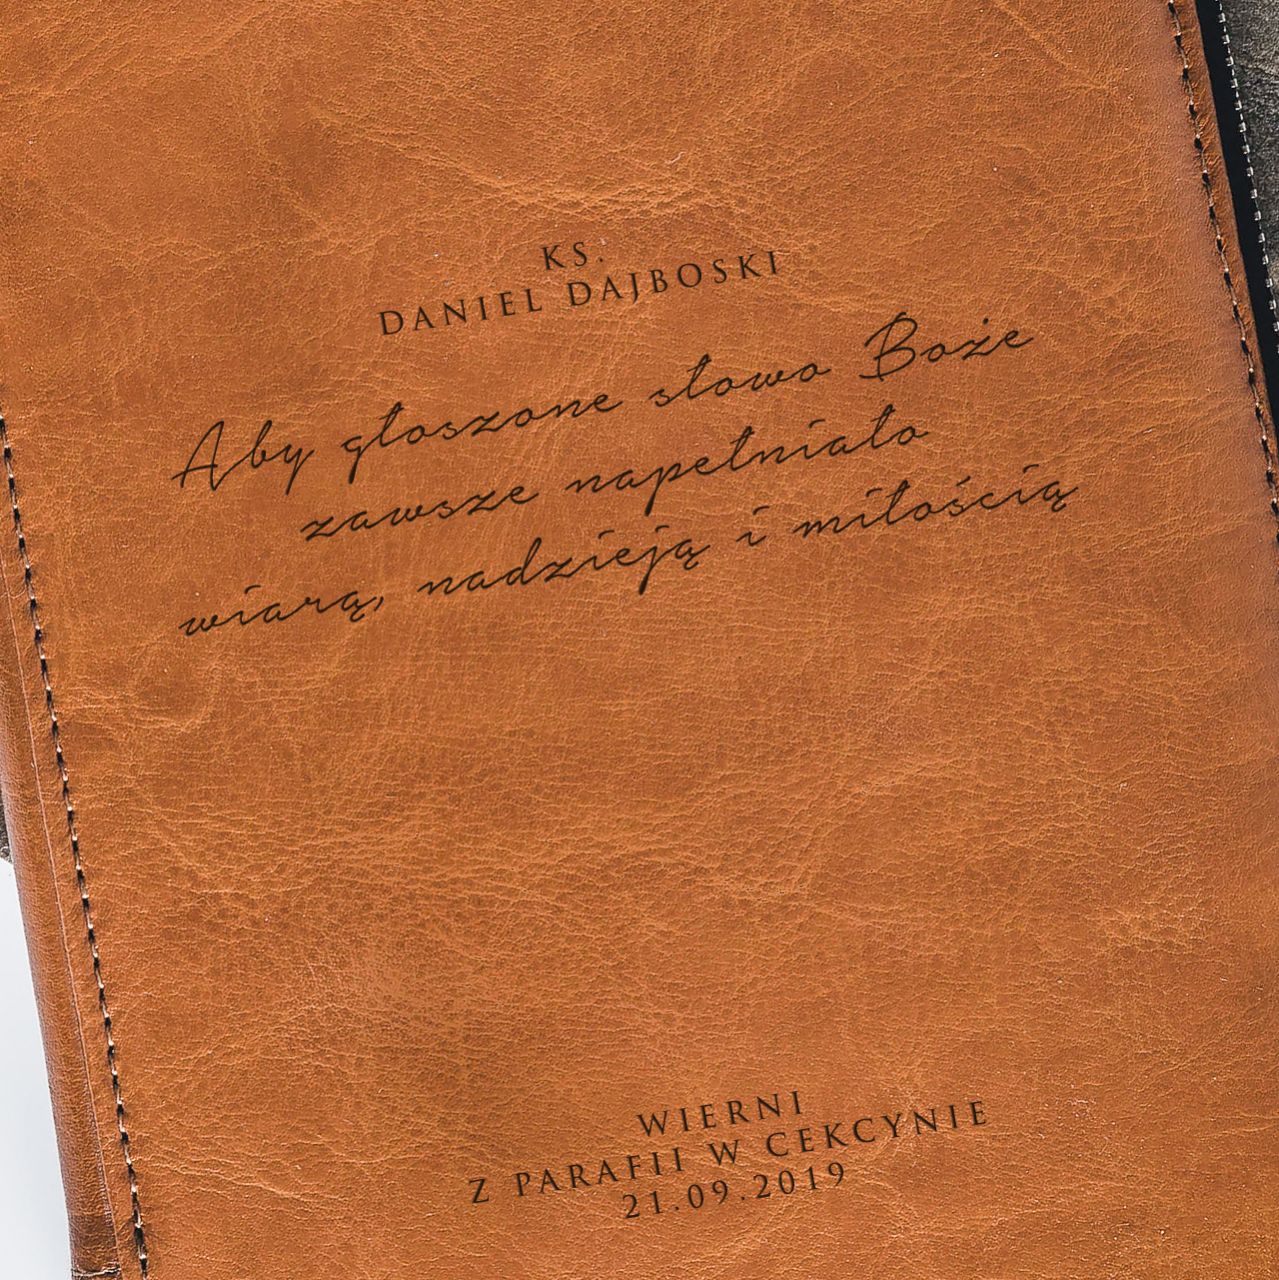 KS.
DANIEL DAJBOSKI
Aby głoszone słowo Boże
zawsze napełniało
wiarą, nadzieją i miłością
WIERNI
Z PARAFII W CEKCYNIE
21.09.2019